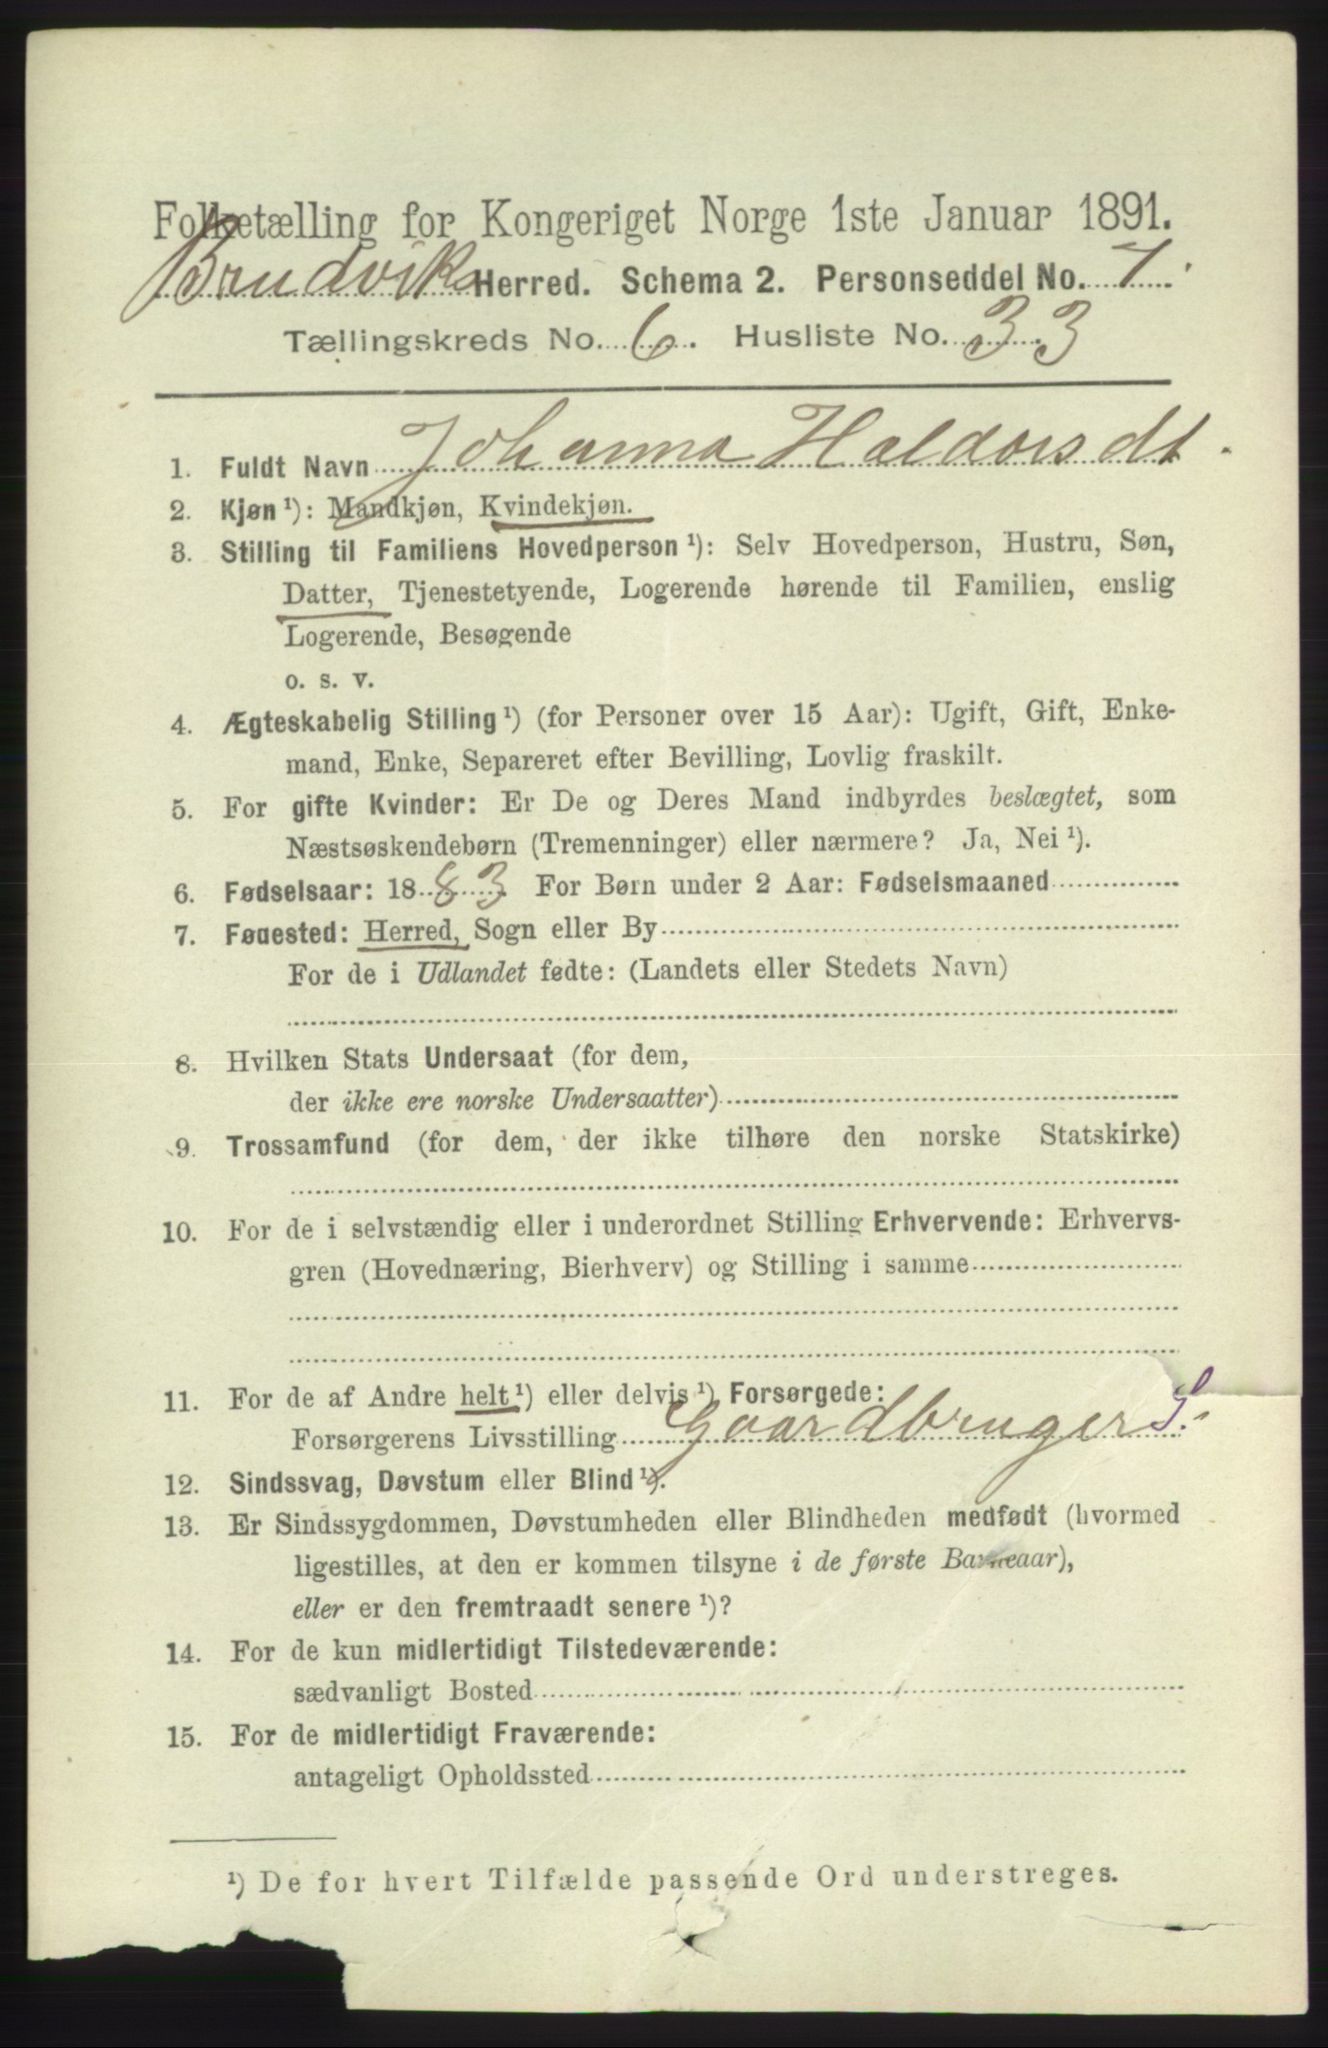 Folketælling for Kongeriget Norge 1ste Januar 1891.
Brudviks Herred. Schema 2. Personseddel No. 7.
Tællingskreds No. 6. Husliste No. 33
1. Fuldt Navn Johanna Haldorsdt.
2. Kjøn ¹): Mandkjøn, Kvindekjøn.
3. Stilling til Familiens Hovedperson ¹): Selv Hovedperson, Hustru, Søn,
Datter, Tjenestetyende, Logerende hørende til Familien, enslig
Logerende, Besøgende
o. s. v.
4. Ægteskabelig Stilling ¹) (for Personer over 15 Aar): Ugift, Gift, Enke-
mand, Enke, Separeret efter Bevilling, Lovlig fraskilt.
5. For gifte Kvinder: Er De og Deres Mand indbyrdes beslægtet, som
Næstsøskendebørn (Tremenninger) eller nærmere? Ja, Nei ¹).
6. Fødselsaar: 1883 For Børn under 2 Aar: Fødselsmaaned
7. Fødested: Herred, Sogn eller By
For de i Udlandet fødte: (Landets eller Stedets Navn)
8. Hvilken Stats Undersaat (for dem,
der ikke ere norske Undersaatter)
9. Trossamfund (for dem, der ikke tilhøre den norske Statskirke)
10. For de i selvstændig eller i underordnet Stilling Erhvervende: Erhvervs-
gren (Hovednæring, Bierhverv) og Stilling i samme
11. For de af Andre helt ¹) eller delvis ¹) Forsørgede:
Forsørgerens Livsstilling Gaardbruger S.
12. Sindssvag, Døvstum eller Blind ¹).
13. Er Sindssygdommen, Døvstumheden eller Blindheden medfødt (hvormed
ligestilles, at den er kommen tilsyne i de første Barneaar),
eller er den fremtraadt senere ¹)?
14. For de kun midlertidigt Tilstedeværende:
sædvanligt Bosted
15. For de midlertidigt Fraværende:
antageligt Opholdssted
¹) De for hvert Tilfælde passende Ord understreges.